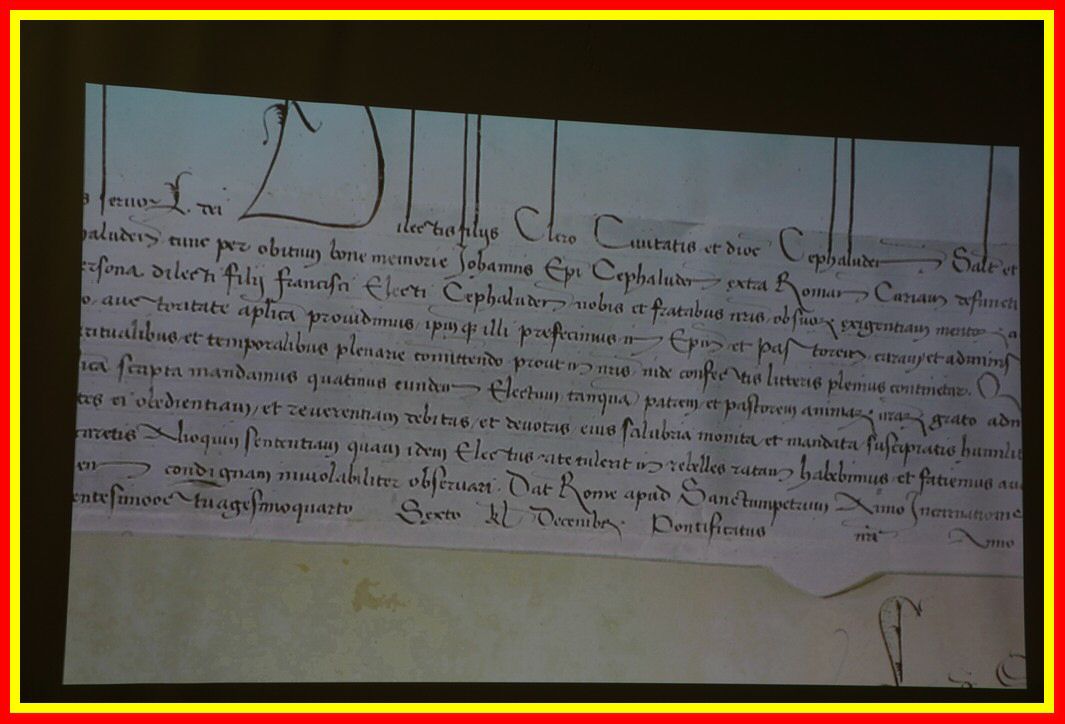 s servor. dei Dilectis filijs Clero Civitatis et dioc Cephaluden Salt et
haluden tunc per obitum bone memorie Johannis Epi Cephaluden extra Romam Curiam defuncti
ersona dilecti filij Francisci Electi Cephaluden nobis et fratribus nris ob suor exigentiam meritor a
o auctoritate aplica providimus ipmq illi prefecimus in Epm et pastorem curam et adminis
ritualibus et temporalibus plenarie comittendo prout in nris inde confectis litteris plenius continetur. Q
lica scripta mandamus quatinus eundem Electum tanqua patrem et pastorem animar vrar grato adm
tes ei obedientiam et reverentiam debitas et devotas eius salubria monita et mandata suscipiatis humilit
curetis Alioquin sententiam quam idem Electus rite tulerit in rebelles ratam habebimus et faciemus auc
em condignam inviolabiliter observari. Dat Rome apud Sanctumpetrum Anno Incarnatione
entesimooctuagesimoquarto Sexto kl Decembr. Pontificatus nri Anno